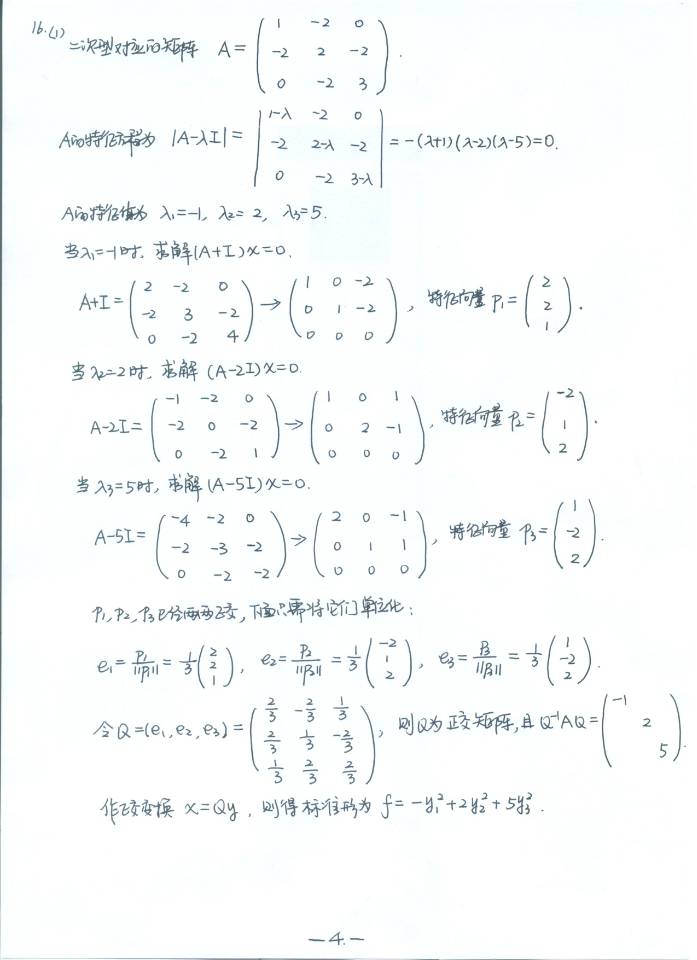 16.(1) 二次型对应的矩阵 A = ( 1 -2 0 ; -2 2 -2 ; 0 -2 3 ).
A的特征方程为 |A-λI| = | 1-λ -2 0 ; -2 2-λ -2 ; 0 -2 3-λ | = -(λ+1)(λ-2)(λ-5)=0.
A的特征值为 λ₁=-1, λ₂=2, λ₃=5.
当λ₁=-1时, 求解(A+I)x=0.
A+I = ( 2 -2 0 ; -2 3 -2 ; 0 -2 4 ) → ( 1 0 -2 ; 0 1 -2 ; 0 0 0 ), 特征向量 p₁ = ( 2 ; 2 ; 1 ).
当λ₂=2时, 求解 (A-2I)x=0.
A-2I = ( -1 -2 0 ; -2 0 -2 ; 0 -2 1 ) → ( 1 0 1 ; 0 2 -1 ; 0 0 0 ), 特征向量 p₂ = ( -2 ; 1 ; 2 ).
当λ₃=5时, 求解 (A-5I)x=0.
A-5I = ( -4 -2 0 ; -2 -3 -2 ; 0 -2 -2 ) → ( 2 0 -1 ; 0 1 1 ; 0 0 0 ), 特征向量 p₃ = ( 1 ; -2 ; 2 ).
p₁, p₂, p₃已经两两正交, 下面只需将它们单位化:
e₁ = p₁/||p₁|| = 1/3 ( 2 ; 2 ; 1 ), e₂ = p₂/||p₂|| = 1/3 ( -2 ; 1 ; 2 ), e₃ = p₃/||p₃|| = 1/3 ( 1 ; -2 ; 2 ).
令Q=(e₁, e₂, e₃) = ( 2/3 -2/3 1/3 ; 2/3 1/3 -2/3 ; 1/3 2/3 2/3 ), 则Q为正交矩阵, 且Q⁻¹AQ = ( -1 ; 2 ; 5 ).
作正交变换 x=Qy, 则得标准形为 f = -y₁²+2y₂²+5y₃².
—4.—